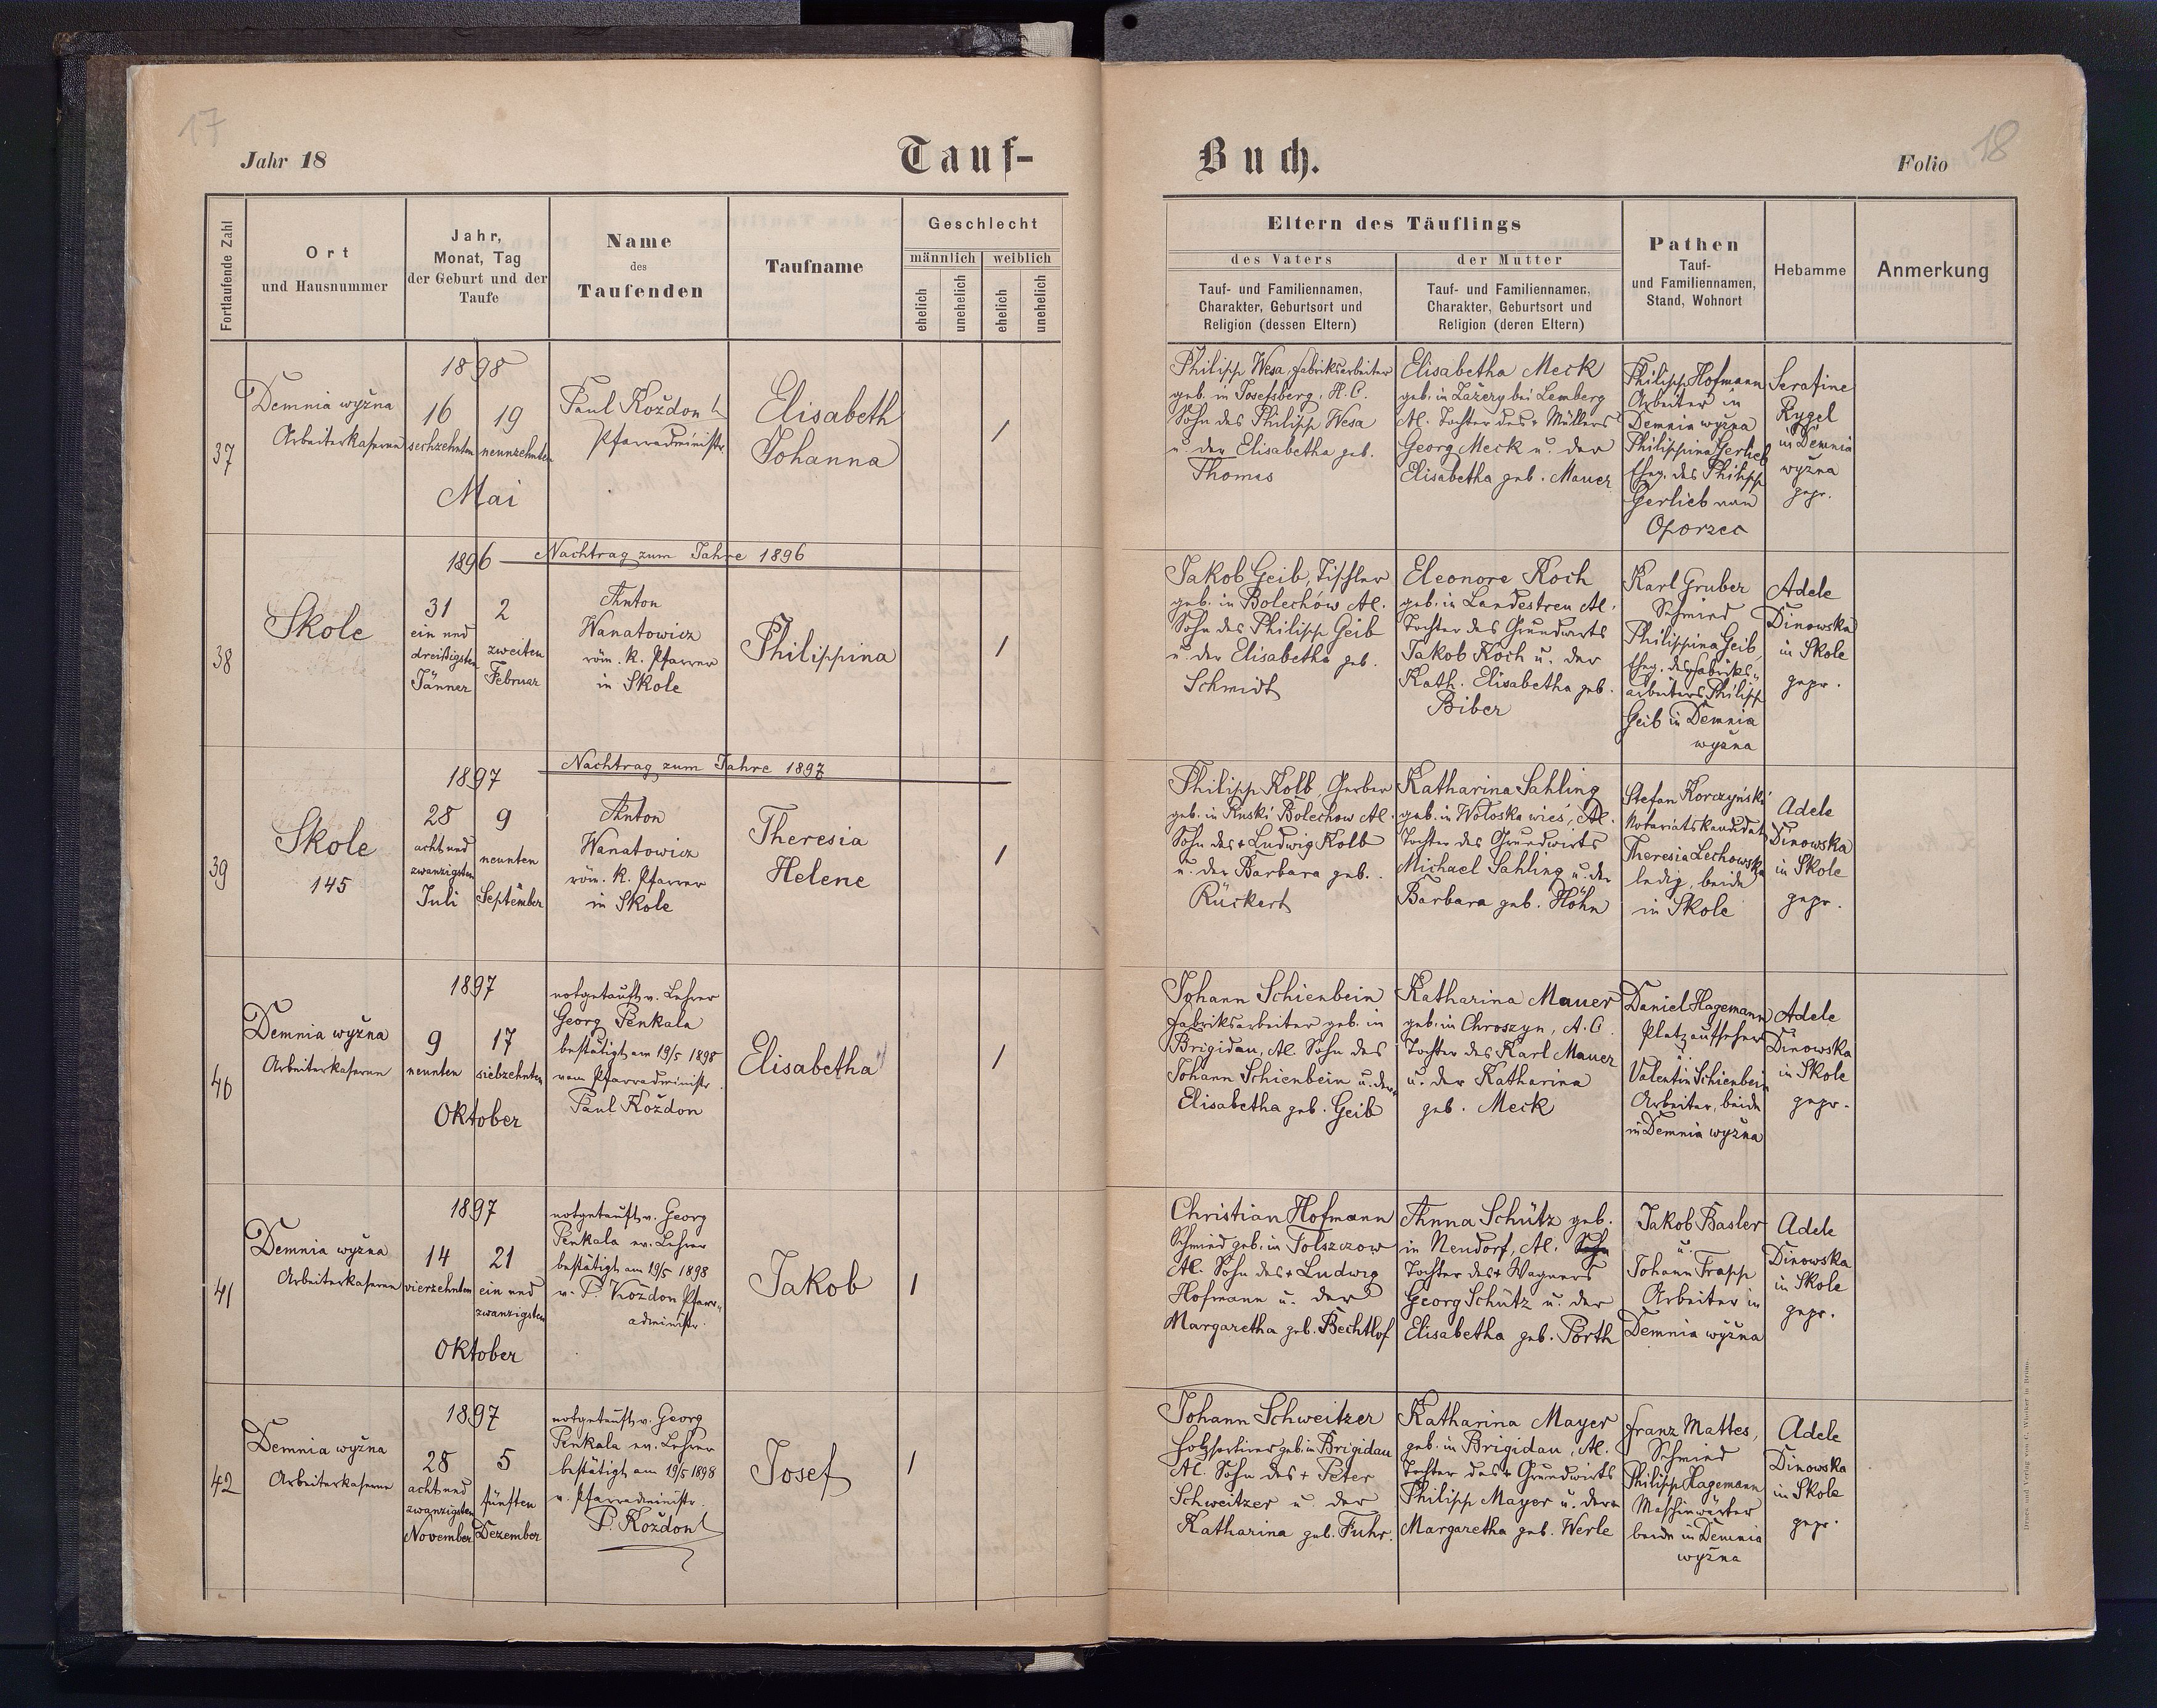 17
Jahr 18
Tauf-
Fortlaufende Zahl
Ort
und Hausnummer
Jahr,
Monat, Tag
der Geburt und der
Taufe
Name
des
Taufenden
Taufname
Geschlecht
männlich
weiblich
ehelich
unehelich
ehelich
unehelich
Buch.
Folio
18
Eltern des Täuflings
des Vaters
der Mutter
Tauf- und Familiennamen,
Charakter, Geburtsort und
Religion (dessen Eltern)
Tauf- und Familiennamen,
Charakter, Geburtsort und
Religion (deren Eltern)
Pathen
Tauf-
und Familiennamen,
Stand, Wohnort
Hebamme
Anmerkung
37
Demnia wyžna
Arbeiterkaserne
1898
16
sechzehnten
19
neunzehnten
Mai
Paul Koždon
Pfarradministr.
Elisabeth
Johanna
/
Philipp Wesa, Fabriksarbeiter
geb. in Josefsberg, H.C.
Sohn des Philipp Wesa
u. der Elisabetha geb.
Thomas
Elisabetha Meck
geb. in Lázery bei Lemberg
AC. Tochter des + Müllers
Georg Meck u. der
Elisabetha geb. Mauer
Philipp Hofmann
Arbeiter in
Demnia wyžna
Philippina Gerlieb
Eheg. des Philipp
Gerlieb von
Oporzec
Serafine
Rygel
in Demnia
wyžna
gepr.
38
Skole
1896
Nachtrag zum Jahre 1896
31
ein und
dreißigsten
Jänner
2
zweiten
Februar
Anton
Wanatowicz
röm. k. Pfarrer
in Skole
Philippina
/
Jakob Geib, Tischler
geb. in Bolechów AC.
Sohn des Philipp Geib
u. der Elisabetha geb.
Schmidt
Eleonore Koch
geb. in Landestreu AC.
Tochter des Grundwirts
Jakob Koch u. der
Kath. Elisabetha geb.
Biber
Karl Gruber
Schmied
Philippina Geib,
Eheg. des Fabriks-
arbeiters Philipp
Geib in Demnia
wyžna
Adele
Dinowska
in Skole
gepr.
39
Skole
145
1897
Nachtrag zum Jahre 1897
28
acht und
zwanzigsten
Juli
9
neunten
September
Anton
Wanatowicz
röm. k. Pfarrer
in Skole
Theresia
Helene
/
Philipp Kolb, Gerber
geb. in Ruski Bolechow AC.
Sohn des + Ludwig Kolb
u. der Barbara geb.
Rückert
Katharina Sahling
geb. in Wołoska wieś, AC.
Tochter des Grundwirts
Michael Sahling u. der
Barbara geb. Höhn
Stefan Korczyński
Notariatskandidat
Theresia Lechowska
ledig, beide
in Skole
Adele
Dinowska
in Skole
gepr.
40
Demnia wyžna
Arbeiterkaserne
1897
9
neunten
17
siebzehnten
Oktober
notgetauft v. Lehrer
Georg Penkala
bestätigt am 19/5 1898
vom Pfarradministr.
Paul Koždon
Elisabetha
/
Johann Schienbein
Fabriksarbeiter geb. in
Brigidau, AC. Sohn des
Johann Schienbein u. der
Elisabetha geb. Geib
Katharina Mauer
geb. in Chroszyn, A.C.
Tochter des Karl Mauer
u. der Katharina
geb. Meck
Daniel Hagemann
Platzaufseher
u.
Valentin Schienbein
Arbeiter, beide
in Demnia wyžna
Adele
Dinowska
in Skole
gepr.
41
Demnia wyžna
Arbeiterkaserne
1897
14
vierzehnten
21
ein und
zwanzigsten
Oktober
notgetauft v. Georg
Penkala ev. Lehrer
bestätigt am 19/5 1898
v. P. Kozdon Pfarr-
administr.
Jakob
/
Christian Hofmann
Schmied geb. in Tolszczow
AC. Sohn des + Ludwig
Hofmann u. der
Margaretha geb. Bechtlof
Anna Schütz geb.
in Neudorf, AC. Sohn
Tochter des + Wagners
Georg Schütz u. der
Elisabetha geb. Porth
Jakob Basler
u.
Johann Trapp
Arbeiter in
Demnia wyžna
Adele
Dinowska
in Skole
gepr.
42
Demnia wyžna
Arbeiterkaserne
1897
28
acht und
zwanzigsten
November
5
fünften
Dezember
notgetauft v. Georg
Penkala ev. Lehrer
bestätigt am 19/5 1898
v. Pfarradministr.
P. Koždon
Josef
/
Johann Schweitzer
Holzsortirer geb. in Brigidau
AC. Sohn des + Peter
Schweitzer u. der
Katharina geb. Fuhr.
Katharina Mayer
geb. in Brigidau, AC.
Tochter des + Grundwirts
Philipp Mayer u. der
Margaretha geb. Werle
Franz Mattes,
Schmied
Philipp Hagemann
Maschinwärter
beide in Demnia
wyžna
Adele
Dinowska
in Skole
gepr.